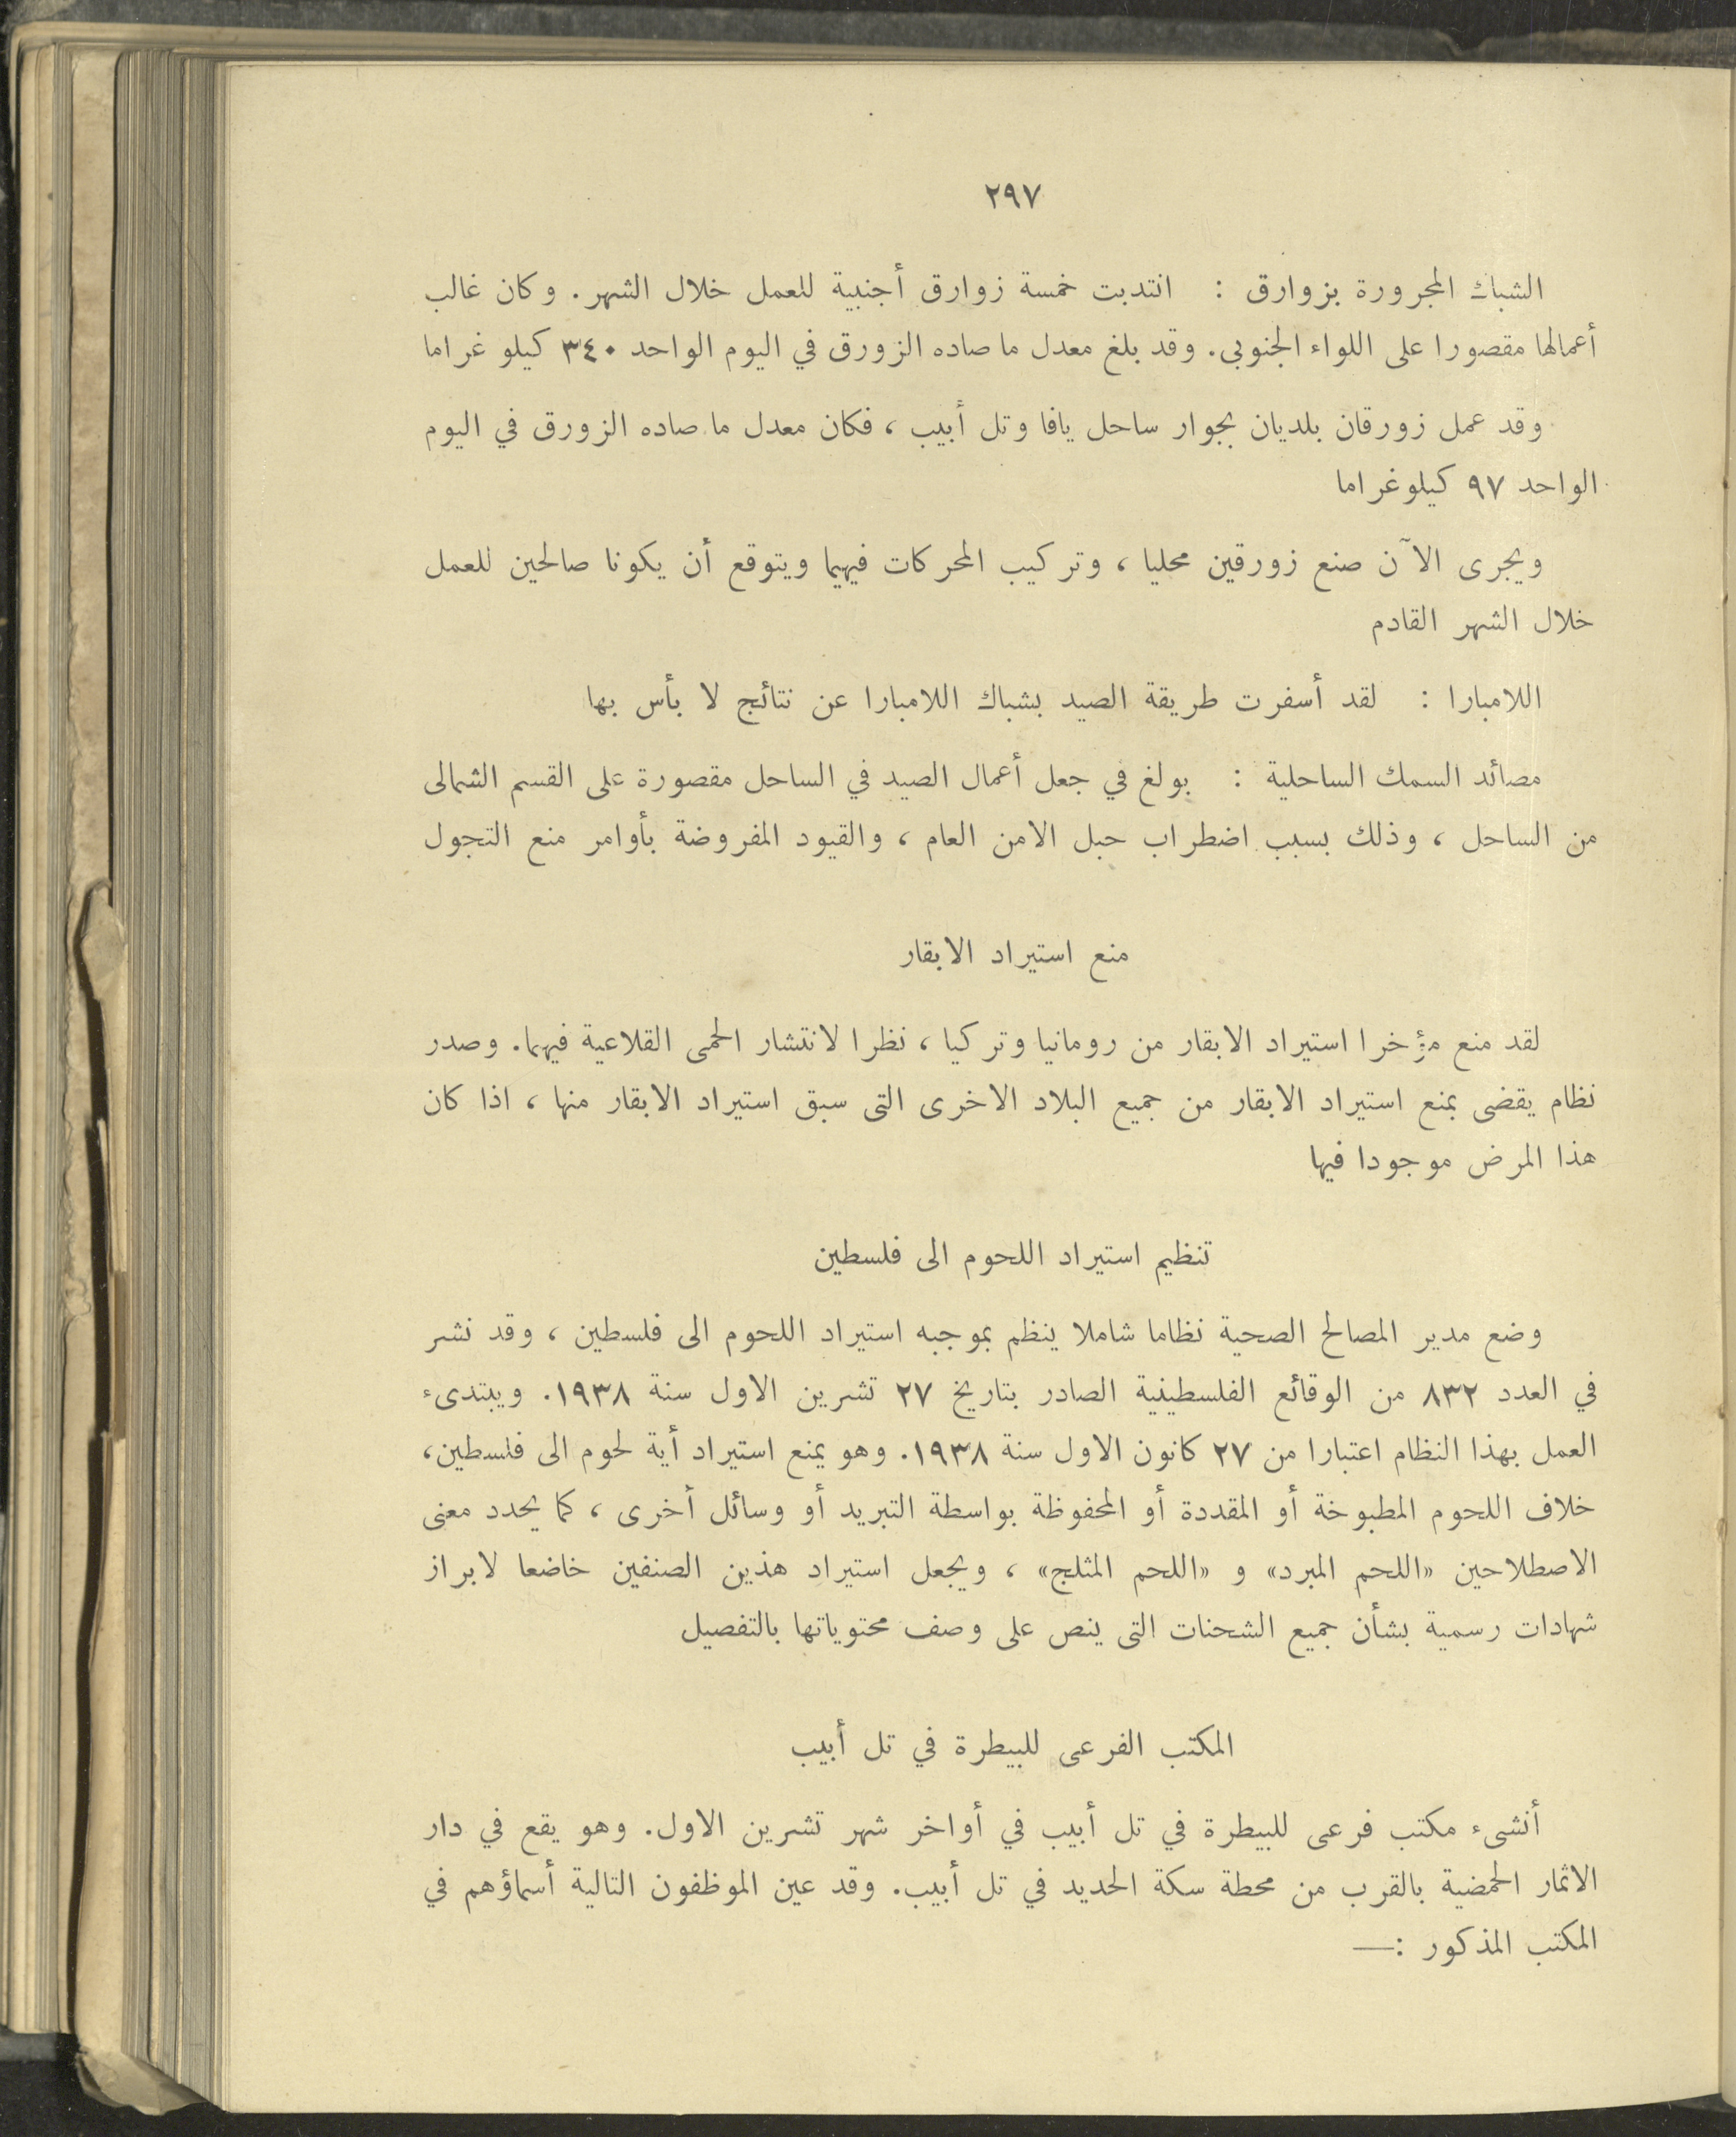 ٢٩٧
الشباك المجرورة بزوارق : انتدبت خمسة زوارق أجنبية للعمل خلال الشهر. وكان غالب
أعمالها مقصورا على اللواء الجنوبى. وقد بلغ معدل ما صاده الزورق في اليوم الواحد ٣٤٠ كيلو غراما
وقد عمل زورقان بلديان بجوار ساحل يافا وتل أبيب ، فكان معدل ما صاده الزورق في اليوم
الواحد ٩٧ كيلوغراما
ويجرى الآن صنع زورقين محليا ، وتركيب المحركات فيهما ويتوقع أن يكونا صالحين للعمل
خلال الشهر القادم
اللامبارا : لقد أسفرت طريقة الصيد بشباك اللامبارا عن نتائج لا بأس بها
مصائد السمك الساحلية : بولغ في جعل أعمال الصيد في الساحل مقصورة على القسم الشمالى
من الساحل ، وذلك بسبب اضطراب حبل الامن العام ، والقيود المفروضة بأوامر منع التجول
منع استيراد الابقار
لقد منع مؤخرا استيراد الابقار من رومانيا وتركيا ، نظرا لانتشار الحمى القلاعية فيهما. وصدر
نظام يقضى بمنع استيراد الابقار من جميع البلاد الاخرى التى سبق استيراد الابقار منها ، اذا كان
هذا المرض موجودا فيها
تنظيم استيراد اللحوم الى فلسطين
وضع مدير المصالح الصحية نظاما شاملا ينظم بموجبه استيراد اللحوم الى فلسطين ، وقد نشر
في العدد ٨٣٢ من الوقائع الفلسطينية الصادر بتاريخ ٢٧ تشرين الاول سنة ١٩٣٨. ويبتدىء
العمل بهذا النظام اعتبارا من ٢٧ كانون الاول سنة ١٩٣٨. وهو يمنع استيراد أية لحوم الى فلسطين،
خلاف اللحوم المطبوخة أو المقددة أو المحفوظة بواسطة التبريد أو وسائل أخرى ، كما يحدد معنى
الاصطلاحين «اللحم المبرد» و «اللحم المثلج» ، ويجعل استيراد هذين الصنفين خاضعا لابراز
شهادات رسمية بشأن جميع الشحنات التى ينص على وصف محتوياتها بالتفصيل
المكتب الفرعى للبيطرة في تل أبيب
أنشىء مكتب فرعى للبيطرة في تل أبيب في أواخر شهر تشرين الاول. وهو يقع في دار
الاثمار الحمضية بالقرب من محطة سكة الحديد في تل أبيب. وقد عين الموظفون التالية أسماؤهم في
المكتب المذكور :—